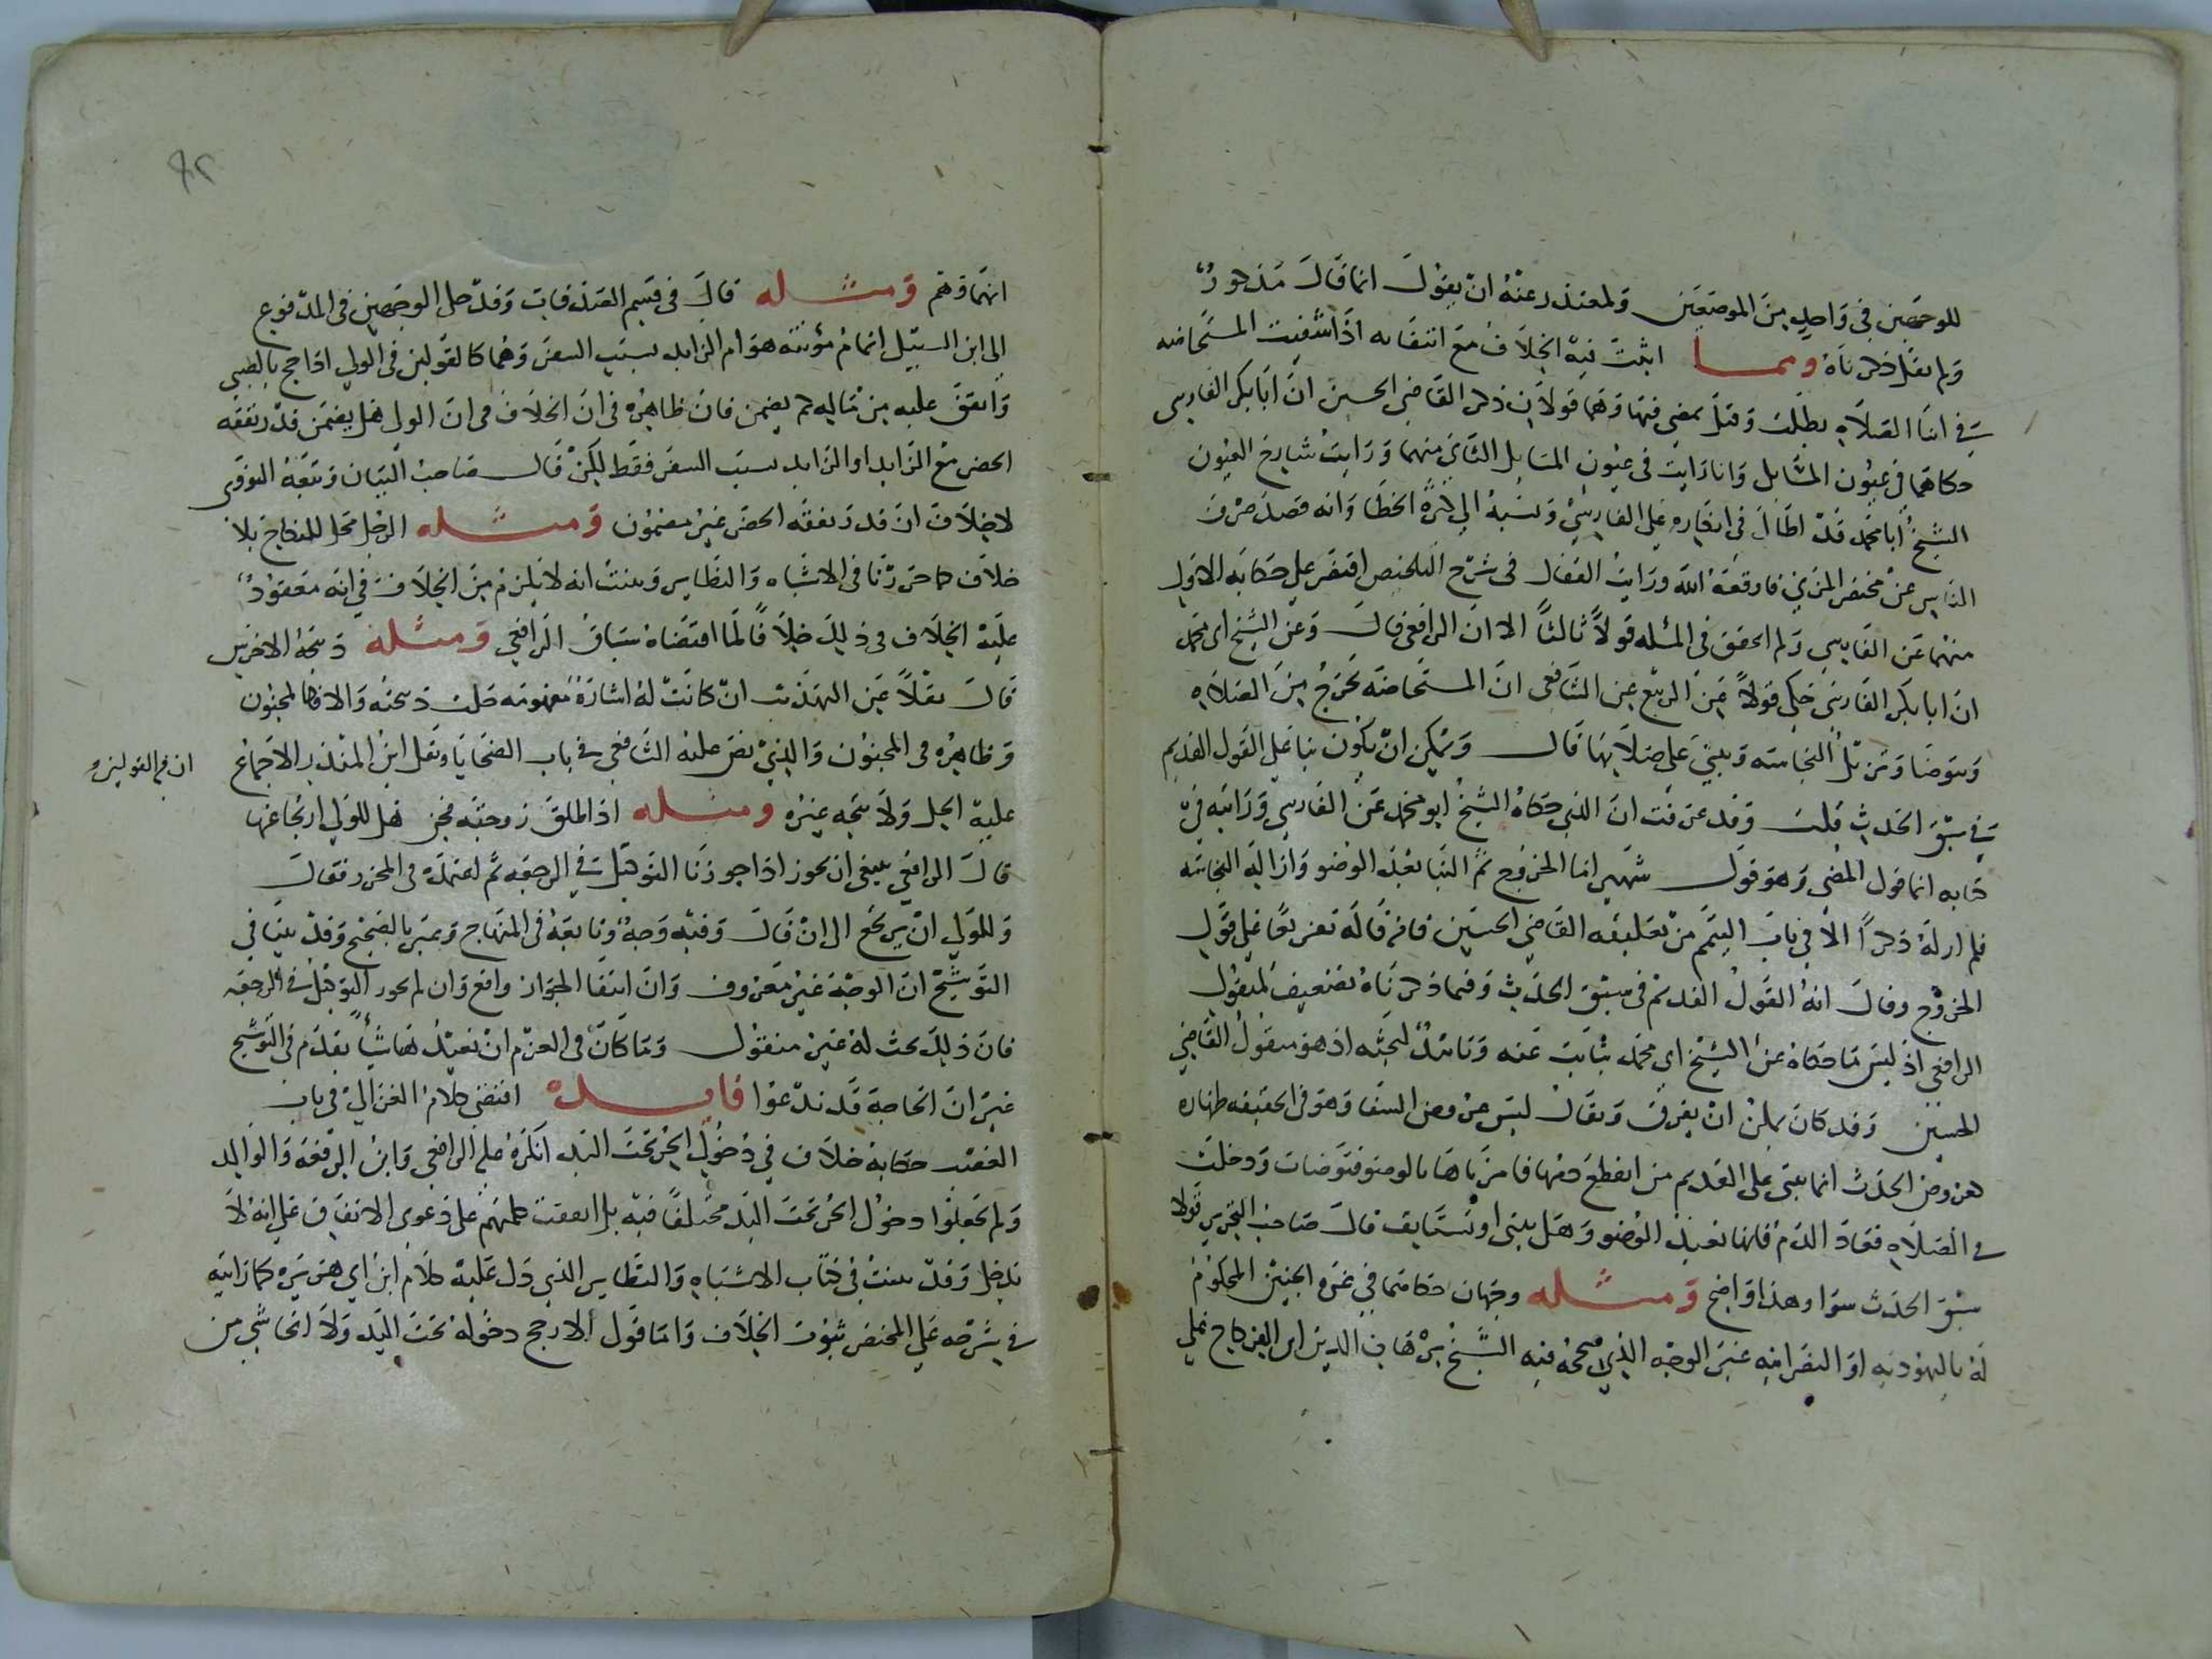 للوجهين في واحد من الموضعين ولمعتذر عنه ان يقول انما قال مذكورٌ
ولم نقل ذكرناه ومما اثبت فيه الخلاف مع انتفائه اذا شفيت المستحاضه
في اثنا الصلاه بطلت وقيل تمضي فيها وهما قولان ذكر القاضي الحسين ان ابا بكر الفارسي
حكاهما في عيون المسائل وانا رايت في عيون المسائل الثاني منهما ورايت شارح العيون
الشيخ ابا محمد قد اطال في انكاره على الفارسي ونسبه الى كثرة الخطا وانه قصد صرف
الناس عن مختصر المزني فاوقعه الله ورايت القفال في شرح التلخيص اقتصر على حكايه الاول
منهما عن الفارسي ولم احقق في المسله قولاً ثالثاً الا ان الرافعي قال وعن الشيخ ابي محمد
ان ابا بكر الفارسي حكى قولاً عن الربيع عن الشافعي ان المستحاضه تخرج من الصلاه
وتتوضا وتزيل النجاسه وتبني على صلاتها قال ويمكن ان يكون بنا على القول القديم
في سبق الحدث قلت وقد عرفت ان الذي حكاه الشيخ ابو محمد عن الفارسي ورايته في
كتابه انما قول المضي وهو قول شهير اما الخروج ثم البنا بعد الوضو وازاله النجاسه
فلم ار له ذكراً الا في باب التيمم من تعليقه القاضي الحسين فانه قاله تفريعا على قول
الخروج وقال انه القول القديم في سبق الحدث وفيما ذكرناه تضعيف لمنقول
الرافعي اذ ليس ما حكاه عن الشيخ ابي محمد بثابت عنه وتاييدٌ لبحثه اذ هو منقول القاضي
الحسين وقد كان يمكن ان يفرق ويقال ليس عروض الشفا وهو في الحقيقه طهاره
كعروض الحدث انما يبنى على القديم من انقطع دمها فامرناها بالوضو فتوضات ودخلت
في الصلاه فعاد الدم فانها تعيد الوضو وهل تبني او تستانف قال صاحب التحرير قولا
سبق الحدث سوا وهذا واضح ومثله وجهان حكاهما في غره الجنين المحكوم
له باليهوديه او النصرانيه غير الوجه الذي صححه فيه الشيخ برهان الدين ابن الفركاح على
انهما وهم ومثله قال في قسم الصدقات وقد حل الوجهين في المدفوع
الى ابن السبيل اتمام مؤنته هو ام الزايد بسبب السفر وهما كالقولين في الولي اذا حج بالصبي
وانفق عليه من ماله لم يضمن فان ظاهره في ان الخلاف في ان الولي هل يضمن قدر نفقه
الحضر مع الزايد او الزايد بسبب السفر فقط لكن قال صاحب البيان وتبعه النووي
لا خلاف ان قدر نفقه الحضر غير مضمون ومثله الرجل محل للنكاح بلا
خلاف كما حررنا في الاشباه والنظاير وبينت انه لا يلزم من الخلاف في انه معقودٌ
عليه الخلاف في ذلك خلافاً لما اقتضاه سياق الرافعي ومثله ذبيحه الاخرس
قال نقلاً عن التهذيب ان كانت له اشارة مفهومه حلت ذبيحته والا فكالمجنون
وظاهره في المجنون والذي نص عليه الشافعي في باب الضحايا ونقل ابن المنذر الاجماع
ان فيه القولين
عليه الحل ولا يتجه غيره ومثله اذا طلق زوجته فجن هل للولي ارتجاعها
قال الرافعي ينبغي ان يجوز اذا جوزنا التوكيل في الرجعه ثم اعتمده في المحرر فقال
وللولي ان يرتجع الى ان قال وفيه وجه وتابعه في المنهاج وعبر بالصحيح وقد بينا في
التوشيح ان الوجه غير معروف وان انتفا الجواز واقع وان لم نجوز التوكيل في الرجعه
فان ذلك بحث له غير منقول وما كان في العزم ان نعيد هاهنا شيأ تقدم في التوشيح
غير ان الحاجة قد تدعوا فايده اقتضى كلام الغزالي في باب
الغصب حكاية خلاف في دخول الحر تحت اليد انكره عليه الرافعي وابن الرفعه والوالد
ولم يجعلوا دخول الحر تحت اليد مختلفاً فيه بل اتفقت كلمتهم على دعوى الاتفاق على انه لا
يدخل وقد بينت في كتاب الاشباه والنظاير الذي دل عليه كلام ابن ابي هريره كما رايته
في شرحه على المختصر ثبوت الخلاف واما قول الارجح دخوله تحت اليد ولا انحاشي من